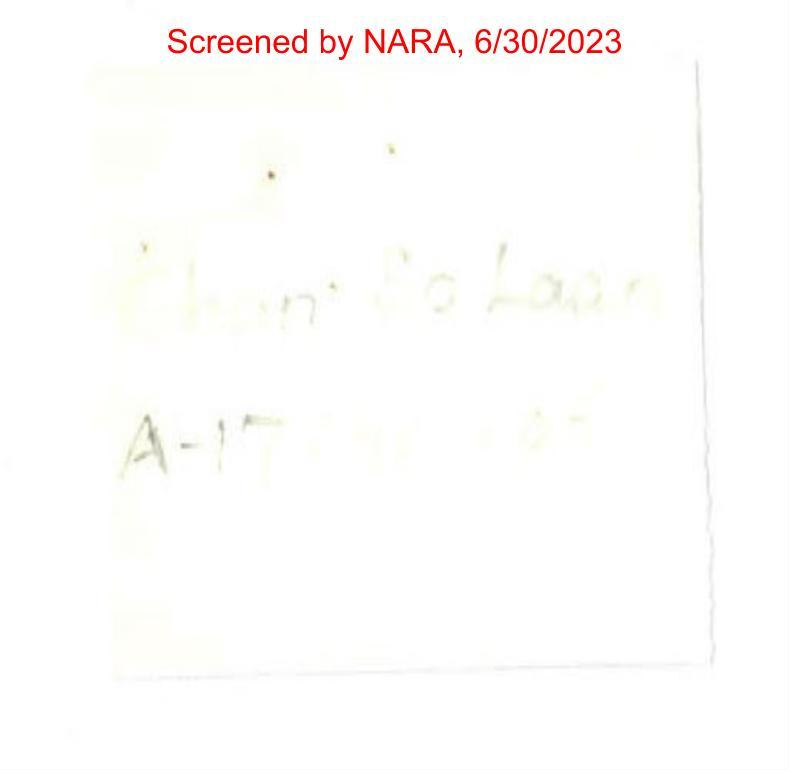 Screened by NARA, 6/30/2023
Chan So Laan
A-17